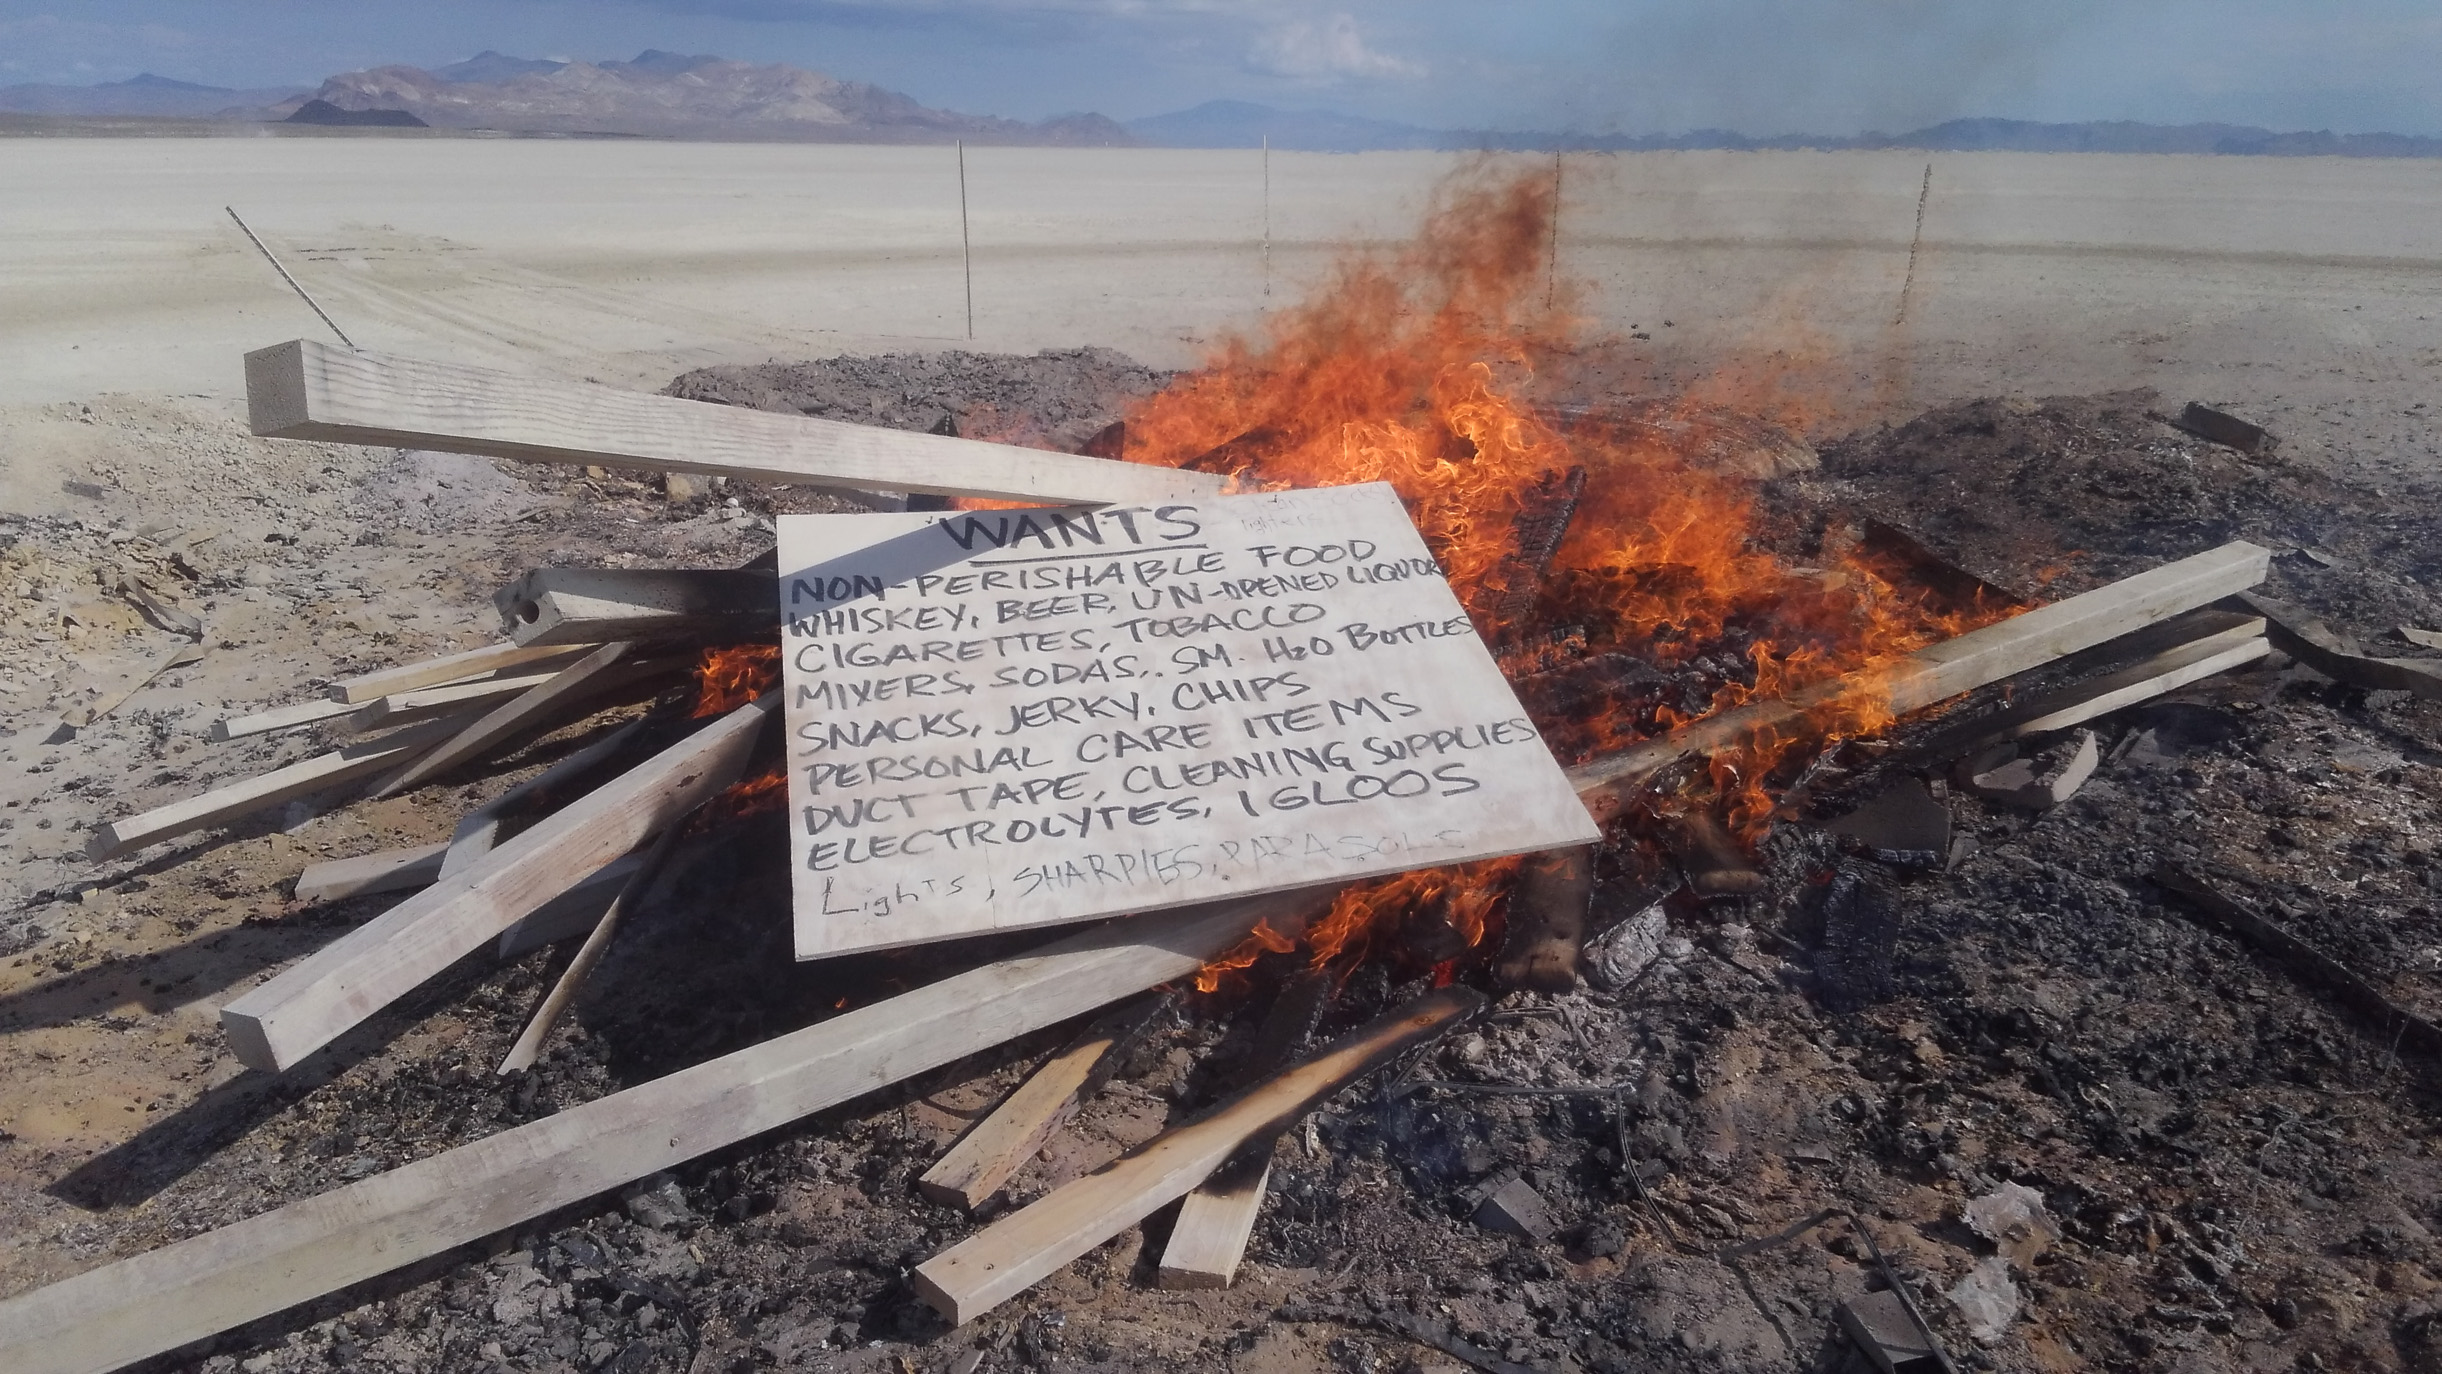 WANTS
lighters
NON-PERISHABLE FOOD
WHISKEY, BEER, UN-OPENED LIQUOR
CIGARETTES, TOBACCO
MIXERS, SODAS, SM. H2O BOTTLES
SNACKS, JERKY, CHIPS
PERSONAL CARE ITEMS
DUCT TAPE, CLEANING SUPPLIES
ELECTROLYTES, IGLOOS
Lights, SHARPIES, PARASOLS